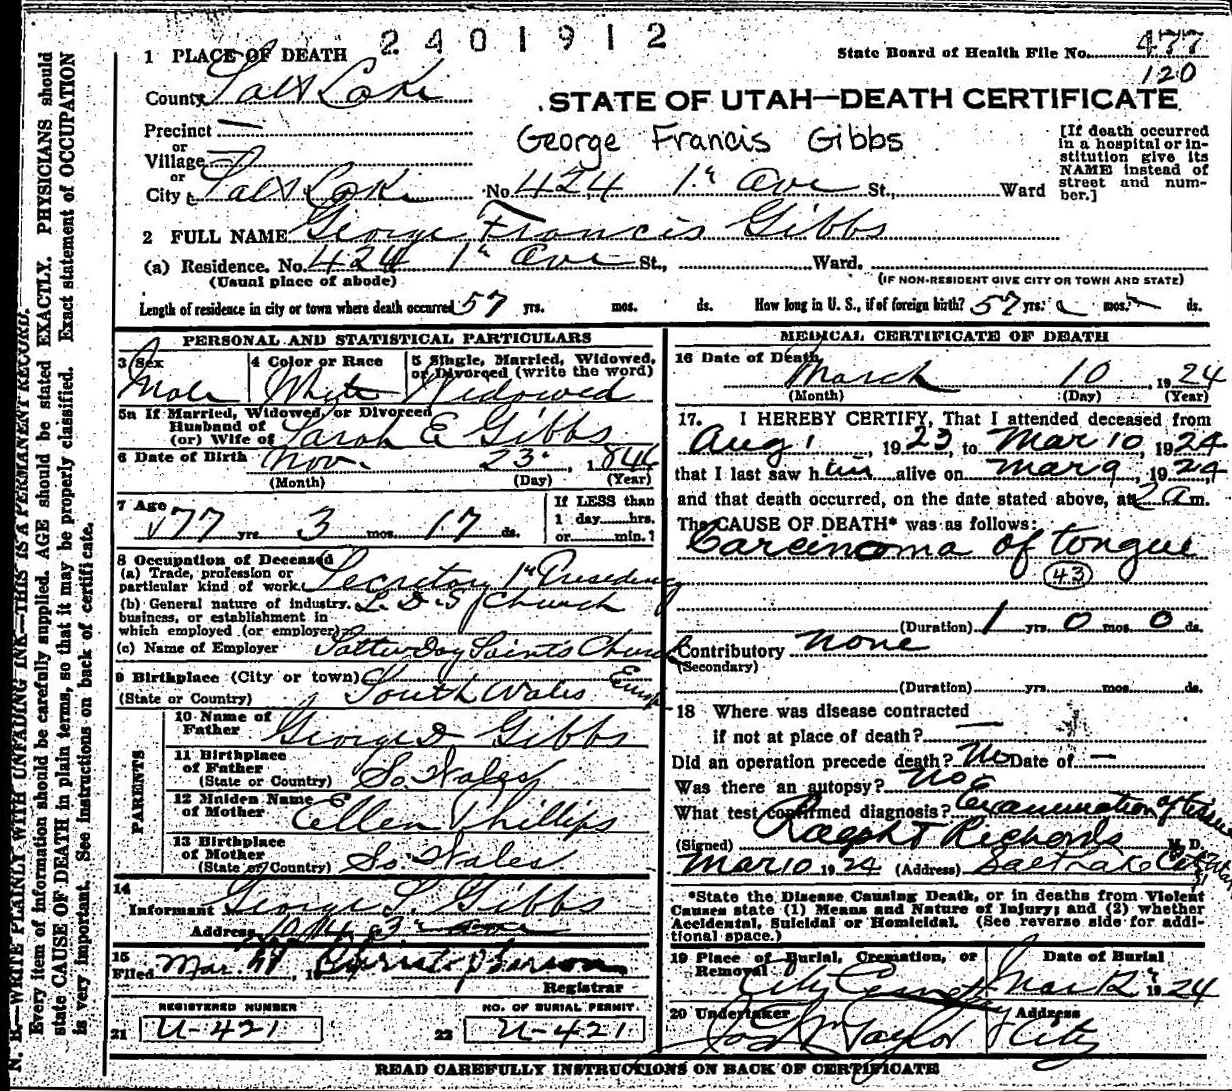 2401912
1 PLACE OF DEATH
State Board of Health File No. 477
120
County Salt Lake
STATE OF UTAH—DEATH CERTIFICATE
Precinct —
George Francis Gibbs
or
Village
or
City Salt Lake No. 424 1st Ave St., Ward
[If death occurred
in a hospital or in-
stitution give its
NAME instead of
street and num-
ber.]
2 FULL NAME George Francis Gibbs
(a) Residence. No. 424 1st Ave St., Ward.
(Usual place of abode) (IF NON-RESIDENT GIVE CITY OR TOWN AND STATE)
Length of residence in city or town where death occurred 57 yrs. mos. ds. How long in U. S., if of foreign birth? 57 yrs. mos. ds.
PERSONAL AND STATISTICAL PARTICULARS
3 Sex
Male
4 Color or Race
White
5 Single, Married, Widowed,
or Divorced (write the word)
Widowed
5a If Married, Widowed, or Divorced
Husband of
(or) Wife of Sarah E Gibbs
6 Date of Birth Nov. 23, 1846
(Month) (Day) (Year)
7 Age
77 yrs. 3 mos. 17 ds.
If LESS than
1 day hrs.
or min.?
8 Occupation of Deceased
(a) Trade, profession or
particular kind of work Secretary 1st Presidency
(b) General nature of industry,
business, or establishment in
which employed (or employer) L.D.S. Church
(c) Name of Employer Latter Day Saints Church
9 Birthplace (City or town)
(State or Country) South Wales
PARENTS
10 Name of
Father George D Gibbs
11 Birthplace
of Father
(State or Country) So. Wales
12 Maiden Name
of Mother Ellen Phillips
13 Birthplace
of Mother
(State or Country) So. Wales
14
Informant George L. Gibbs
Address
15
Filed Mar
Registrar
REGISTERED NUMBER
21 U-421
NO. OF BURIAL PERMIT
22 U-421
MEDICAL CERTIFICATE OF DEATH
16 Date of Death
March 10, 1924
(Month) (Day) (Year)
17. I HEREBY CERTIFY, That I attended deceased from
Aug 1, 1923, to Mar 10, 1924
that I last saw him alive on Mar 9, 1924
and that death occurred, on the date stated above, at 2 am.
The CAUSE OF DEATH* was as follows:
Carcinoma of tongue
43
(Duration) 1 yrs. 0 mos. 0 ds.
Contributory None
(Secondary)
(Duration) yrs. mos. ds.
18 Where was disease contracted
if not at place of death?
Did an operation precede death? No Date of —
Was there an autopsy? No
What test confirmed diagnosis? Examination of tissue
(Signed) Ralph T Richards M. D.
Mar 10 1924 (Address) Salt Lake City Utah
*State the Disease Causing Death, or in deaths from Violent
Causes state (1) Means and Nature of Injury; and (2) whether
Accidental, Suicidal or Homicidal. (See reverse side for addi-
tional space.)
19 Place of Burial, Cremation, or
Removal City Cemetery
Date of Burial
Mar 12 1924
20 Undertaker
Jos Wm Taylor
Address
City
READ CAREFULLY INSTRUCTIONS ON BACK OF CERTIFICATE
N. B.—WRITE PLAINLY WITH UNFADING INK—THIS IS A PERMANENT RECORD.
Every item of information should be carefully supplied. AGE should be stated EXACTLY. PHYSICIANS should
state CAUSE OF DEATH in plain terms, so that it may be properly classified. Exact statement of OCCUPATION
is very important. See instructions on back of certificate.